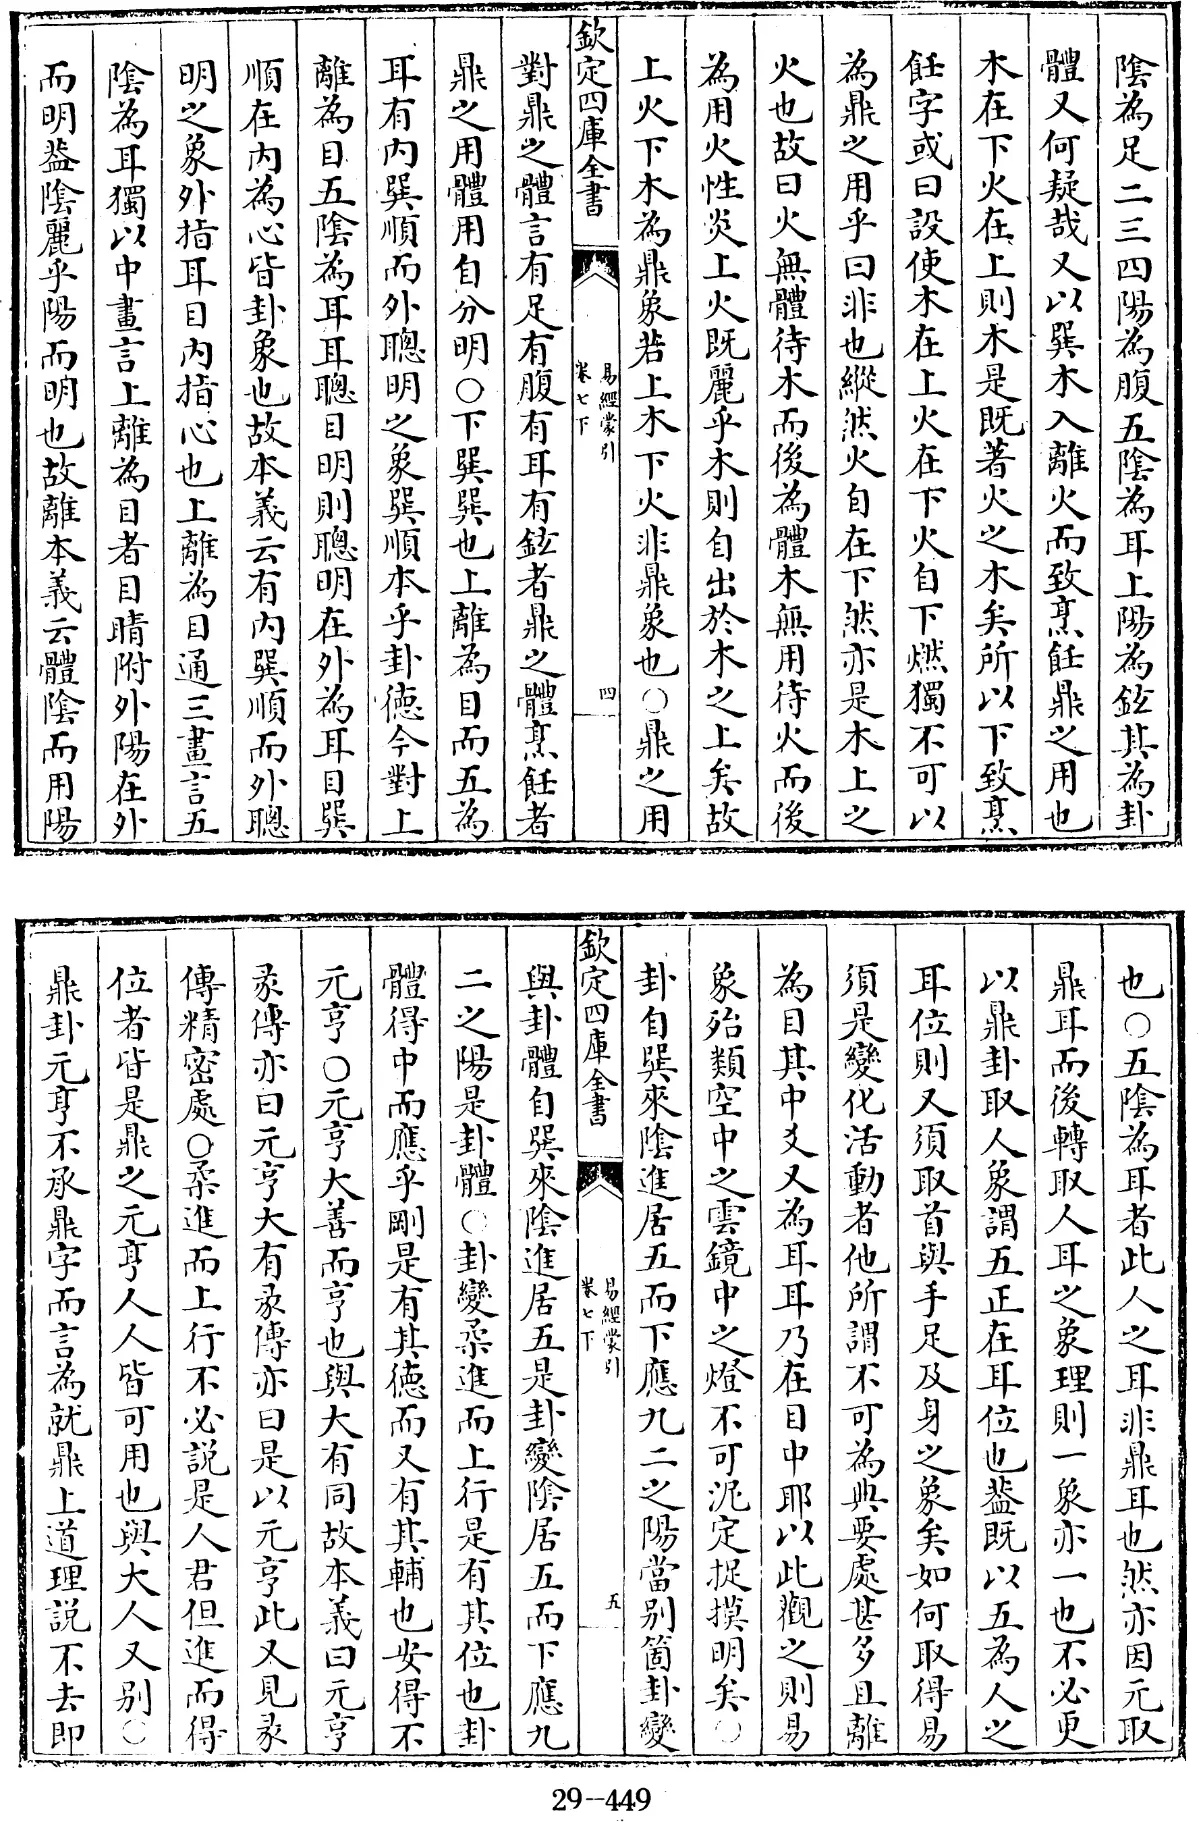 陰為足二三四陽為腹五陰為耳上陽為鉉其為卦
體又何疑哉又以巽木入離火而致烹飪鼎之用也
木在下火在上則木是既著火之木矣所以下致烹
飪字或曰設使木在上火在下火自下燃獨不可以
為鼎之用乎曰非也縱然火自在下然亦是木上之
火也故曰火無體待木而後為體木無用待火而後
為用火性炎上火既麗乎木則自出於木之上矣故
上火下木為鼎象若上木下火非鼎象也○鼎之用
欽定四庫全書
易經蒙引
卷七下
四
對鼎之體言有足有腹有耳有鉉者鼎之體烹飪者
鼎之用體用自分明○下巽巽也上離為目而五為
耳有内巽順而外聰明之象巽順本乎卦德今對上
離為目五陰為耳耳聰目明則聰明在外為耳目巽
順在内為心皆卦象也故本義云有内巽順而外聰
明之象外指耳目内指心也上離為目通三畫言五
陰為耳獨以中畫言上離為目者目睛附外陽在外
而明葢陰麗乎陽而明也故離本義云體陰而用陽
也○五陰為耳者此人之耳非鼎耳也然亦因元取
鼎耳而後轉取人耳之象理則一象亦一也不必更
以鼎卦取人象謂五正在耳位也葢既以五為人之
耳位則又須取首與手足及身之象矣如何取得易
須是變化活動者他所謂不可為典要處甚多且離
為目其中爻又為耳耳乃在目中耶以此觀之則易
象殆類空中之雲鏡中之燈不可泥定捉摸明矣○
卦自巽來陰進居五而下應九二之陽當别箇卦變
欽定四庫全書
易經蒙引
卷七下
五
與卦體自巽來陰進居五是卦變陰居五而下應九
二之陽是卦體○卦變柔進而上行是有其位也卦
體得中而應乎剛是有其德而又有其輔也安得不
元亨○元亨大善而亨也與大有同故本義曰元亨
彖傳亦曰元亨大有彖傳亦曰是以元亨此又見彖
傳精密處○柔進而上行不必説是人君但進而得
位者皆是鼎之元亨人人皆可用也與大人又别○
鼎卦元亨不承鼎字而言為就鼎上道理説不去即
29--449